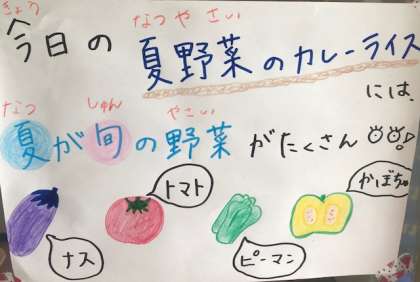 きょう なつ や さい
今日の 夏野菜のカレーライス
には、
なつ しゅん やさい
夏が旬の野菜がたくさん
トマト
かぼちゃ
ナス
ピーマン